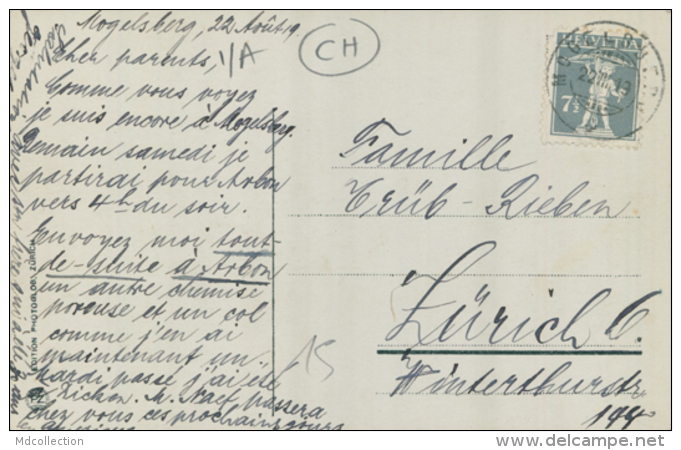 Mogelsberg, 22 Août 19
Cher parents,
Comme vous voyez
je suis encore à Mogelsberg.
Demain samedi je
partirai pour Arbon
vers 4h du soir.
Envoyez moi tout-
de-suite à Arbon
un autre chemise
poreuse et un col
comme j'en ai
maintenant un
mardi passé j'ai été
Rickon. M. Naef passera
chez vous ces prochains jours
1/A
CH
HELVETIA
7½
Famille
Trüb-Rieben
Zürich 6.
Winterthurstr
144
15
EDITION PHOTOGLOB, ZÜRICH
Mdcollection
www.delcampe.net